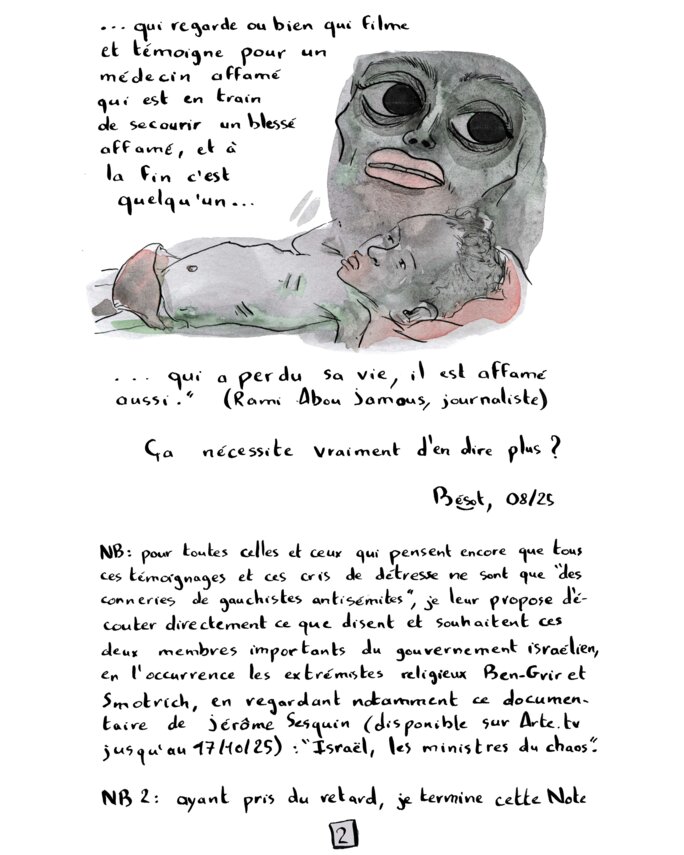 ... qui regarde ou bien qui filme
et témoigne pour un
médecin affamé
qui est en train
de secourir un blessé
affamé, et à
la fin c'est
quelqu'un...
... qui a perdu sa vie, il est affamé
aussi." (Rami Abou Jamous, journaliste)
Ça nécessite vraiment d'en dire plus ?
Bésot, 08/25
NB: pour toutes celles et ceux qui pensent encore que tous
ces témoignages et ces cris de détresse ne sont que "des
conneries de gauchistes antisémites", je leur propose d'é-
couter directement ce que disent et souhaitent ces
deux membres importants du gouvernement israélien,
en l'occurrence les extrémistes religieux Ben-Gvir et
Smotrich, en regardant notamment ce documen-
taire de Jérôme Sesquin (disponible sur Arte.tv
jusqu'au 17/10/25) : "Israël, les ministres du chaos".
NB 2: ayant pris du retard, je termine cette Note
2